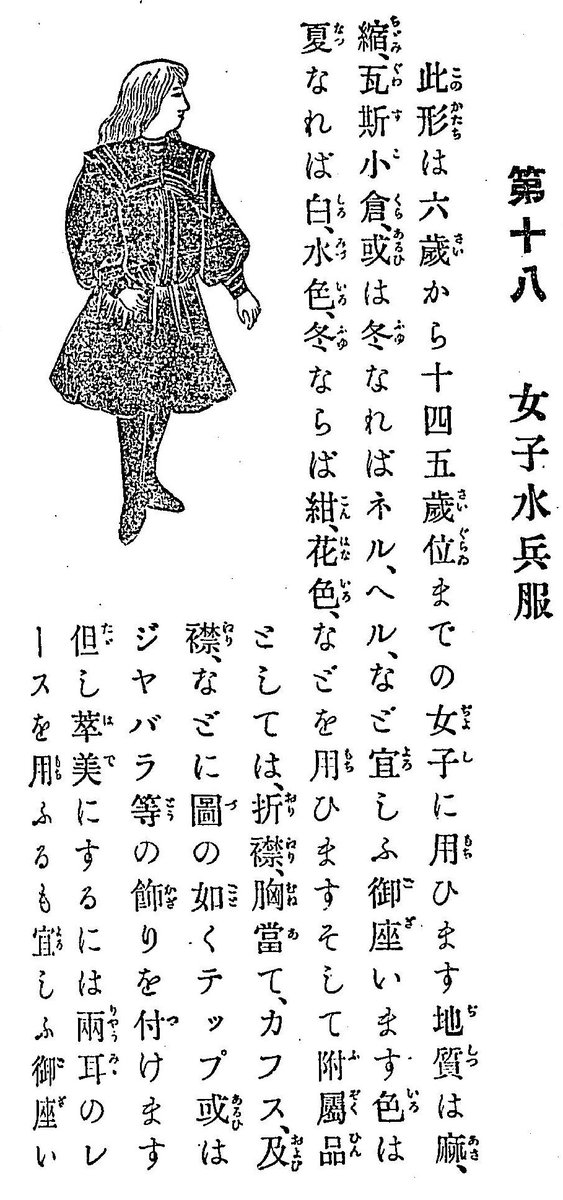 第十八　女子水兵服
此形は六歲から十四五歲位までの女子に用ひます地質は麻、
縮、瓦斯小倉、或は冬なればネル、ヘル、など宜しふ御座います色は
夏なれば白、水色、冬ならば紺、花色、などを用ひますそして附屬品
としては、折襟、胸當て、カフス、及
襟、などに圖の如くテップ或は
ジヤバラ等の飾りを付けます
但し萃美にするには兩耳のレ
ースを用ふるも宜しふ御座い